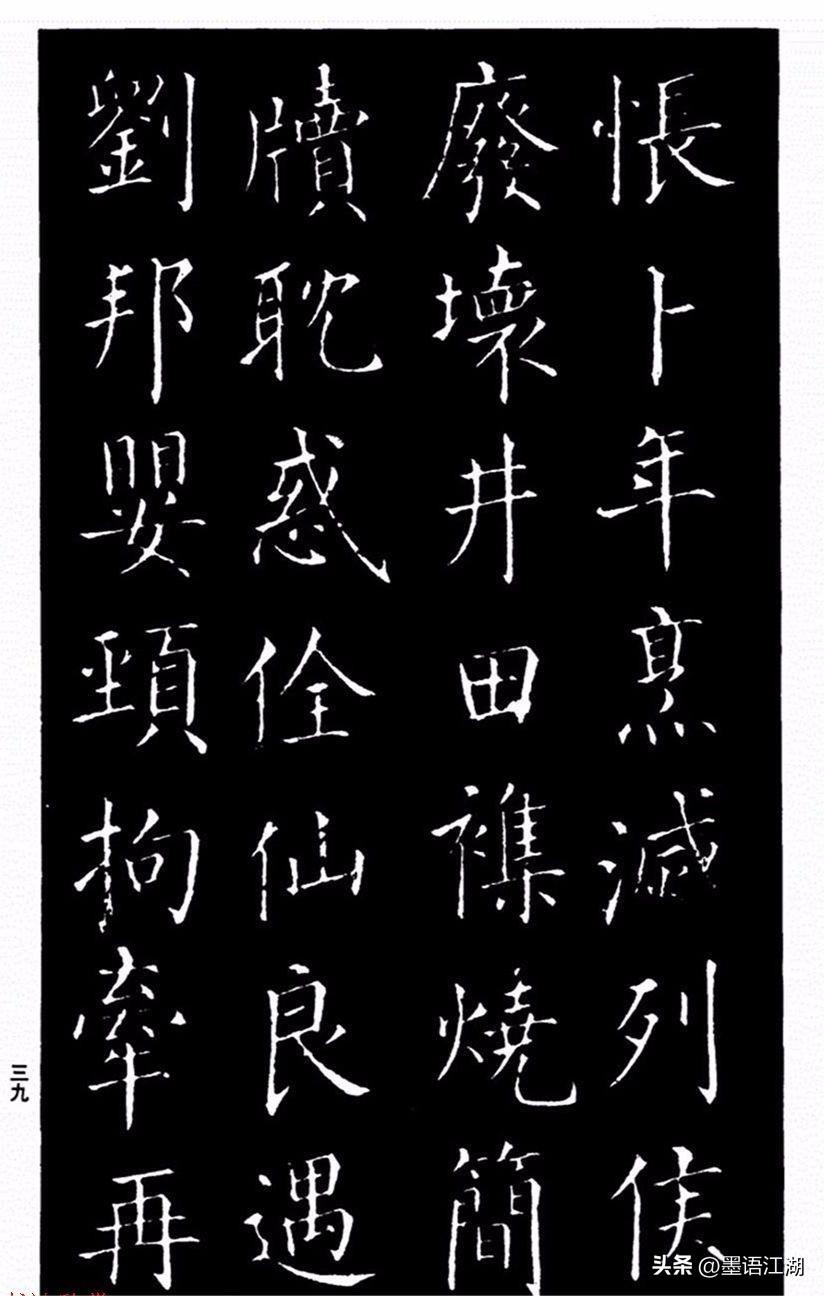 悵卜年烹滅列侯
廢壞井田襍燒簡
牘耽惑佺仙良遇
劉邦嬰頸拘牽再
三九
头条 @墨语江湖